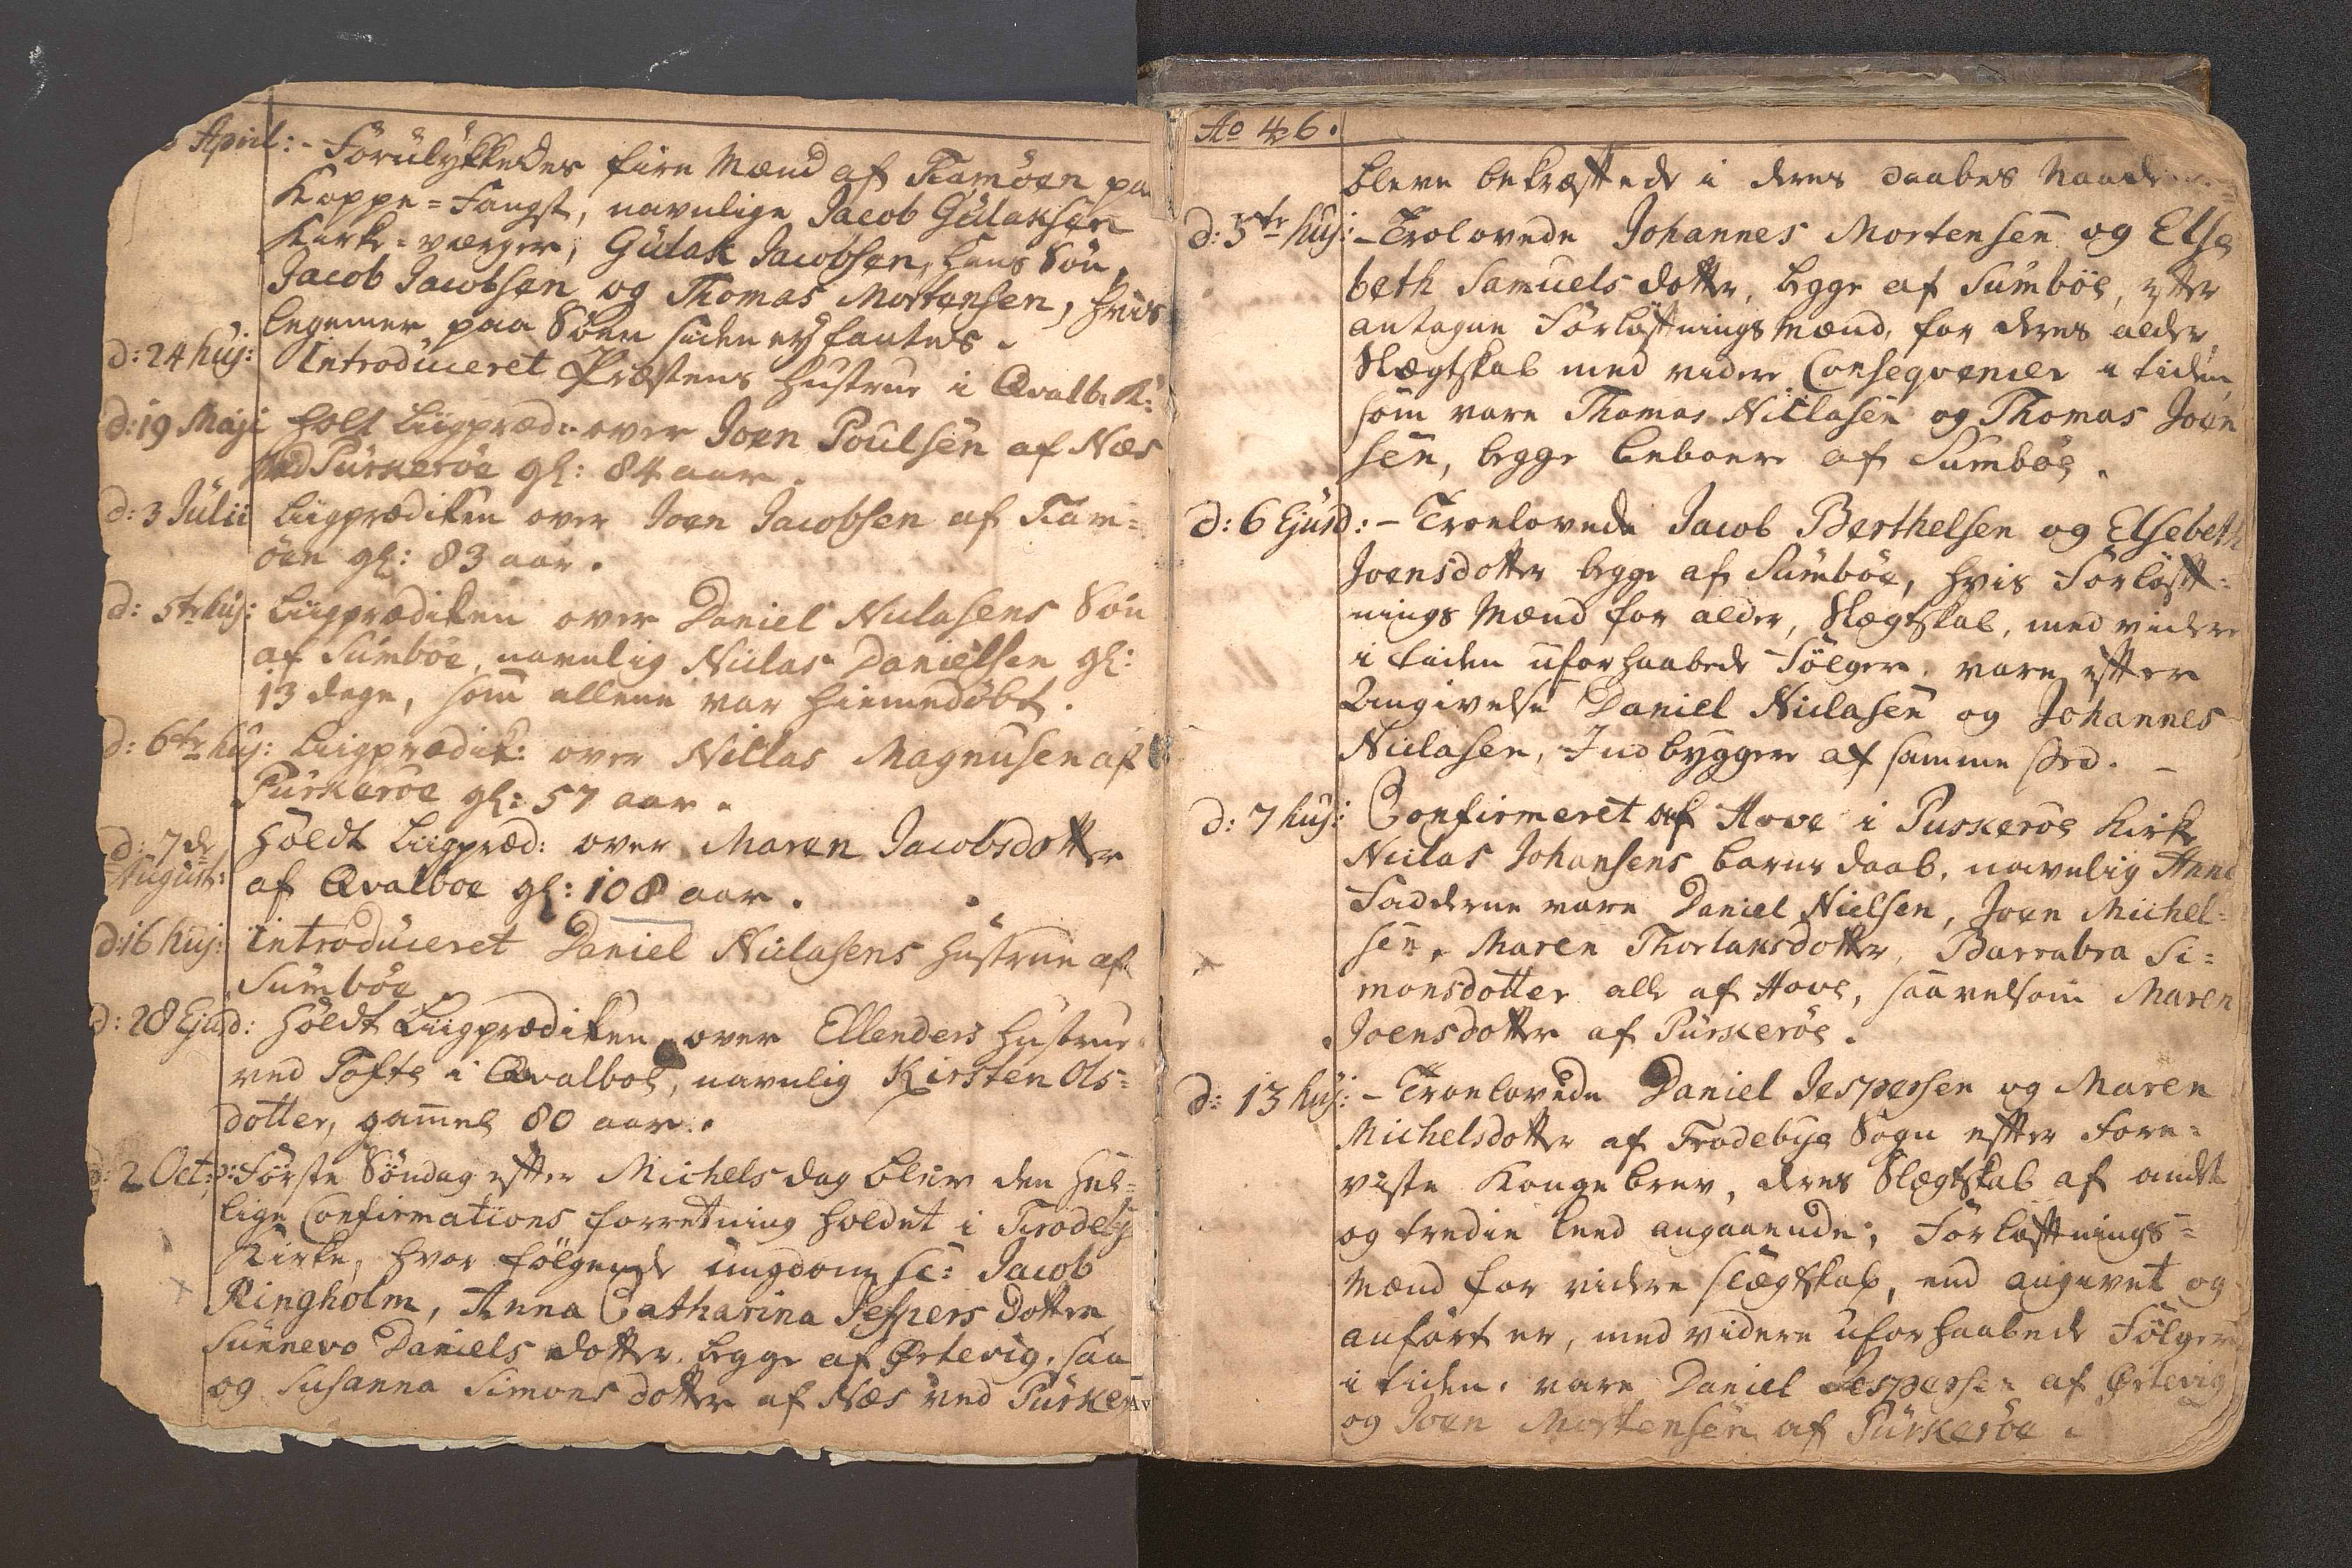 April: - Forulykkedes fire Mænd af Famöen paa
Koppe=Fangst, navnlige Jacob Gulaksen
Kirke=værger, Gulak Jacobsen, hans Sön,
Jacob Jacobsen og Thomas Mortensen, hvis
legemer paa Söen siden ey fantes.
d: 24 huj: Introduceret Præstens hustrue i Qvalb: K:
d: 19 Maji holt Liigpræd: over Joen Poulsen af Næs
ved Purkeröe gl: 84 aar.
d: 3 Julii Liigprædiken over Joen Jacobsen af Fam=
öen gl: 83 aar.
d: 5te huj: Liigprædiken over Daniel Niclasens Sön
af Sumböe, navnlig Niclas Danielsen gl:
13 dage, som allene var hiemedöbt.
d: 6te huj: Liigprædik: over Nillas Magnusen af
Purkeröe gl: 57 aar.
d: 7de Höldt Liigpræd: over Maren Jacobsdotter
August: af Qvalboe gl: 108 aar.
d: 16 huj: Introduceret Daniel Niclasens hustrue af
Sumböe
d: 28 Ejusd: höldt Liigprædiken over Ellenders hustrue
ved Tofte i Qvalboe, navnlig Kirsten Ols=
dotter, gammel 80 aar.
d: 2 Oct: Förste Söndag effter Michels dag blev den hel=
lige Confirmations forretning holdet i Frodeby
Kirke, hvor fölgende ungdom sc: Jacob
Ringholm, Anna Catharina Jespers dotter
Sunnevo Daniels dotter begge af Ørtevig, saa
og Susanna Simons dotter af Næs ved Purker
Ao 46.
bleve bekræfftede i deres daabes Naade
d: 5te huj: - Trolovede Johannes Mortensen og Else
beth Samuels dotter, begge af Sumböe, effter
antagne Forlöfftnings Mænd, for deres alder,
Slægtskab med videre Consequencer i tiden,
som vare Thomas Niclasen og Thomas Joen
sen, begge beboere af Sumböe.
d: 6 Ejusd: - Troelovede Jacob Berthelsen og Elsebeth
Joensdotter begge af Sumböe, hvis Forlöfft=
nings Mænd for alder, Slægtskab, med videre
i tiden uforhaabede Fölger, vare effter
Angivelse Daniel Niclasen og Johannes
Niclasen, Indbyggere af samme sted.
d: 7 huj: Confirmeret af Hove i Puskeröe Kirke
Niclas Johansens barns daab, navnlig Anne
Fadderne vare Daniel Nielsen, Joen Michel=
sen, Maren Thorlaksdotter, Barrabra Si=
monsdotter alle af Hove, saavelsom Maren
Joensdotter af Purkeröe.
d: 13 huj: - Troelovede Daniel Jespersen og Maren
Michelsdotter af Frodebye Sogn effter Fore=
viste Kongebrev, deres Slægtskab af andet
og tredie leed angaaende; Forlöfftnings=
Mænd for videre slægtskab, end angivet og
anfört er, med videre uforhaabede Fölger
i tiden, vare Daniel Jespersen af Ørtevig
og Joen Mortensen af Purkeröe.